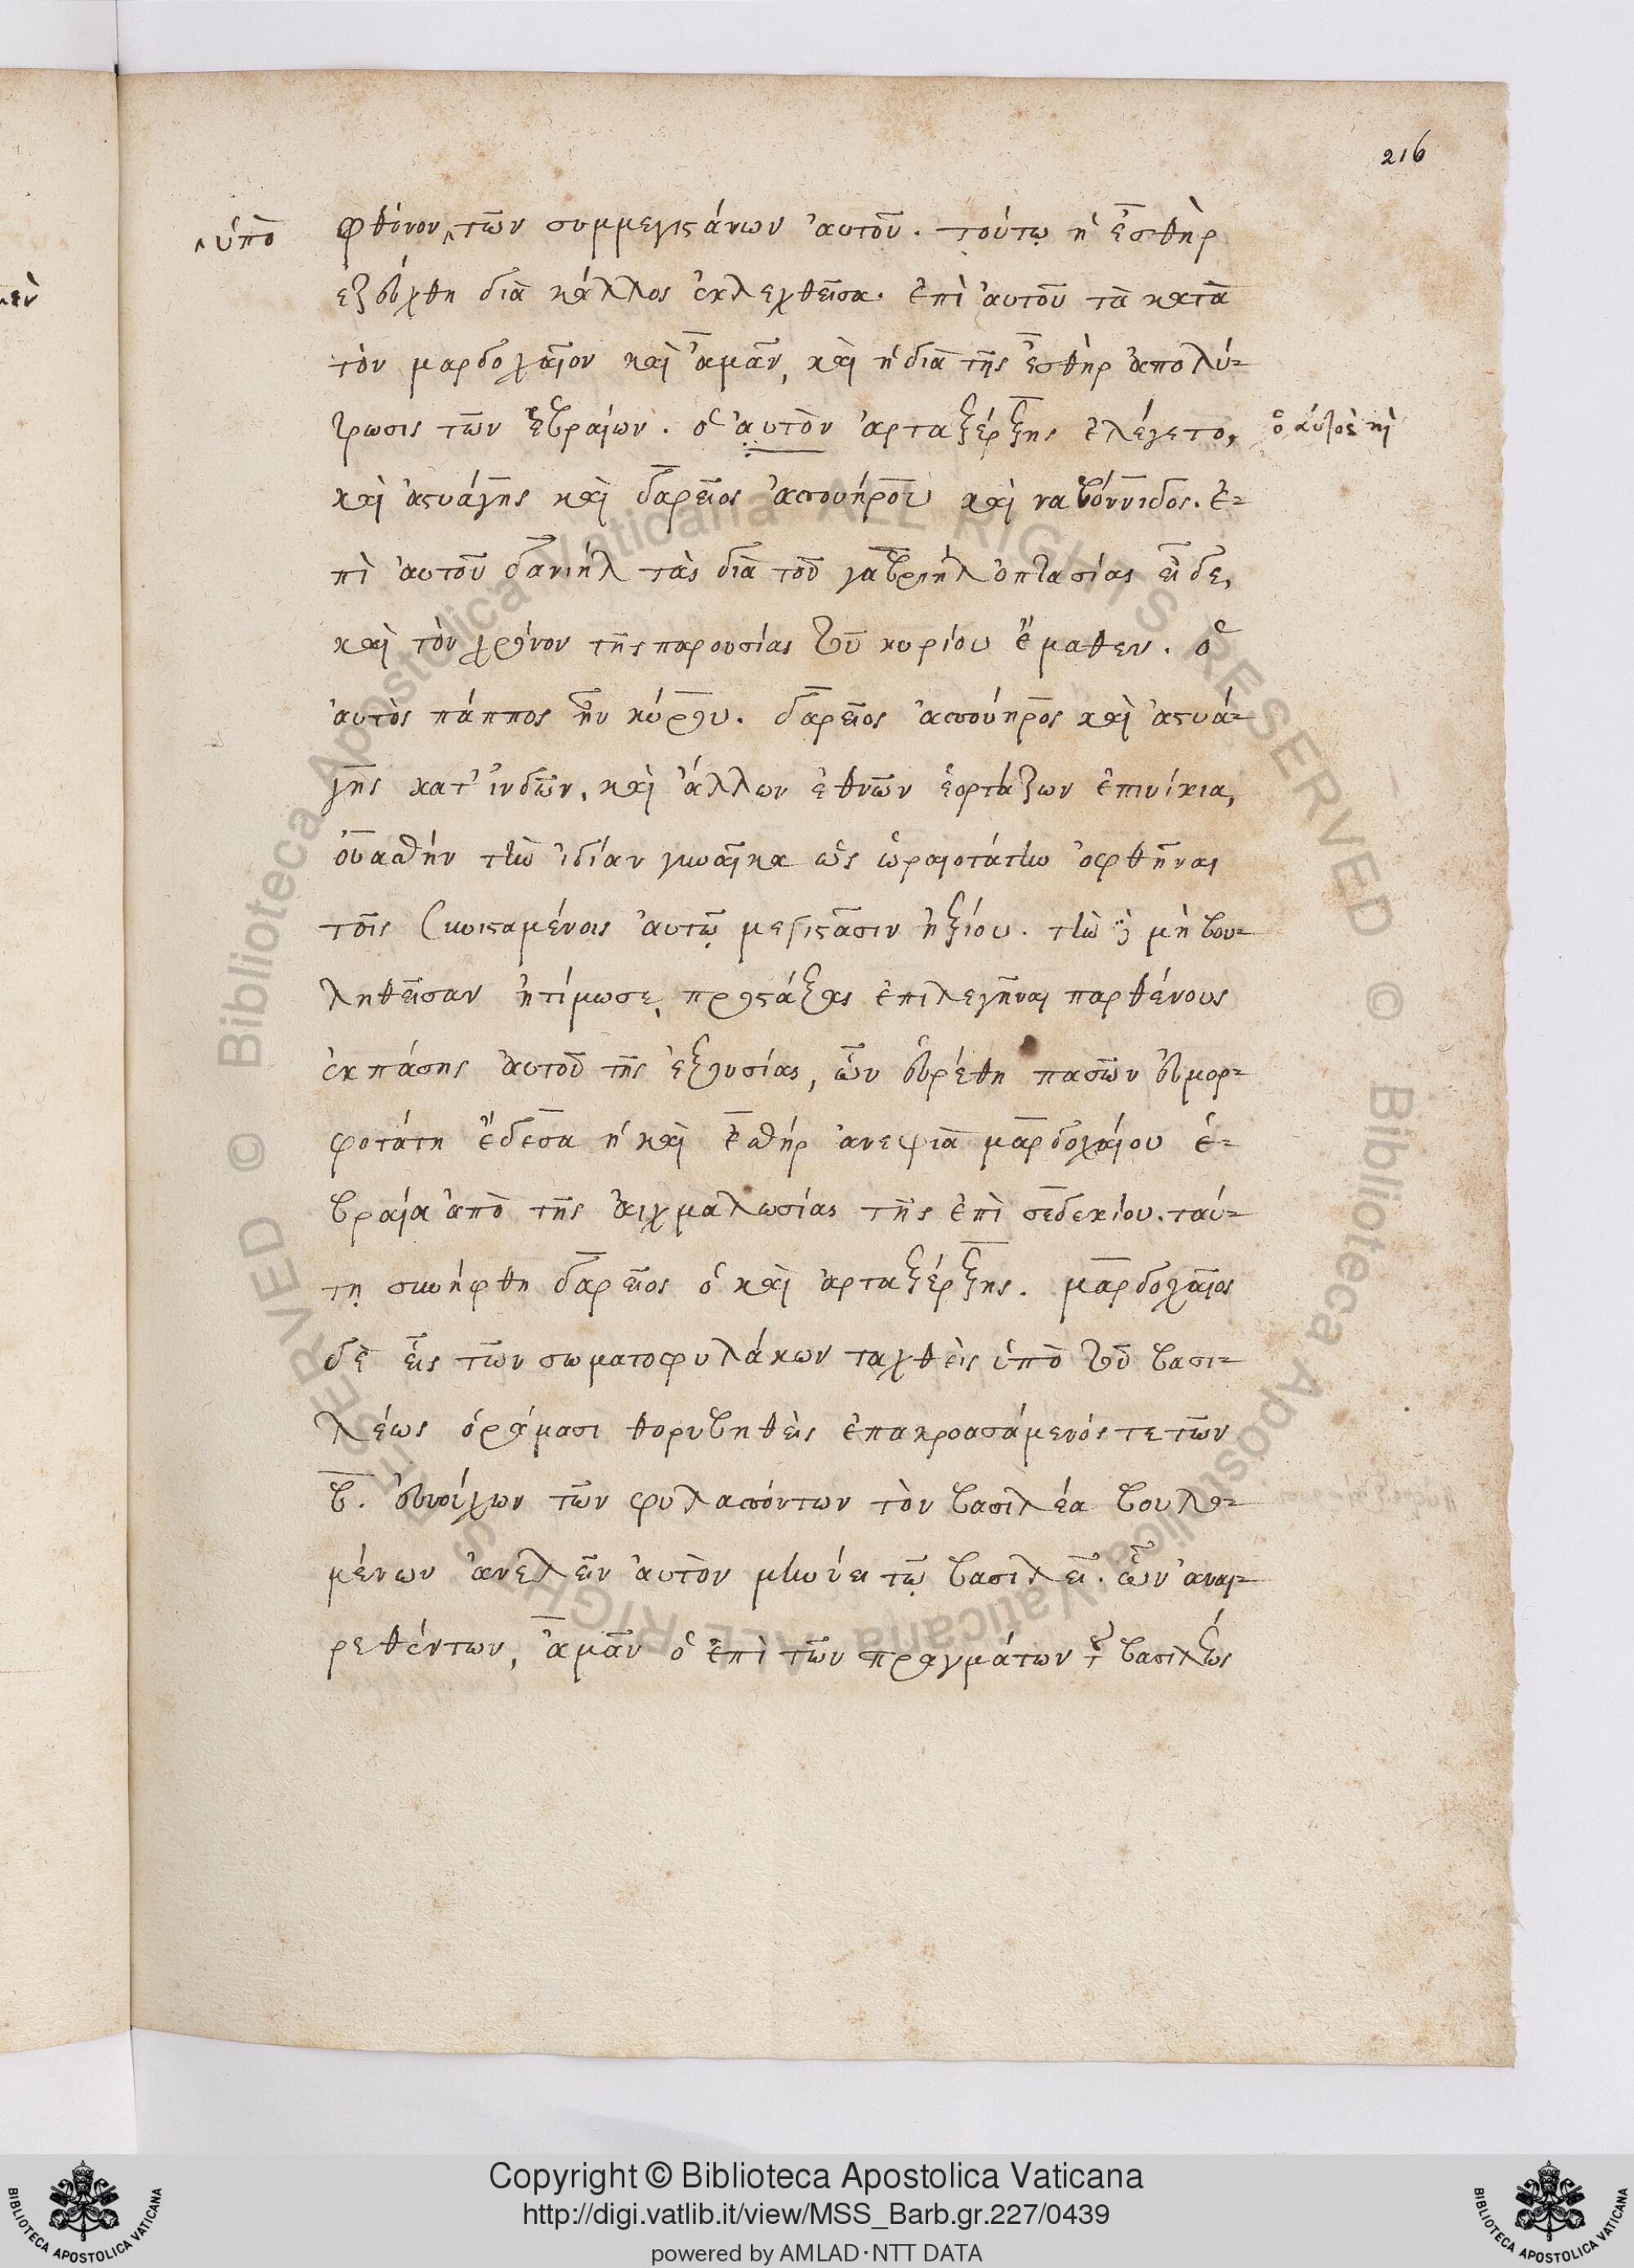 216
^ὑπὸ φθόνον ^ τῶν συμμεγιστάνων αὐτοῦ. τούτῳ ἡ ἐσθὴρ
ἐζεύχθη διὰ κάλλος ἐκλεχθεῖσα. ἐπὶ αὐτοῦ τὰ κατὰ
τὸν μαρδοχαῖον καὶ ἀμὰν, καὶ ἡ διὰ τῆς ἐσθὴρ ἀπολύ-
τρωσις τῶν ἑβραίων. ὁ αὐτὸν ἀρταξέρξης ἐλέγετο, ὁ αὐτὸς καὶ
καὶ ἀστυάγης καὶ δαρεῖος ἀσσουήρου καὶ ναβόννιδος. ἐ-
πὶ αὐτοῦ δανιὴλ τὰς διὰ τοῦ γαβριὴλ ὀπτασίας εἶδε,
καὶ τὸν χρόνον τῆς παρουσίας τοῦ κυρίου ἔμαθεν. ὁ
αὐτὸς πάππος ἦν κύρου. δαρεῖος ἀσσούηρος καὶ ἀστυά-
γης κατ' ἰνδῶν, καὶ ἄλλων ἐθνῶν ἑορτάζων ἐπινίκια,
οὐασθὴν τὴν ἰδίαν γυναῖκα ὡς ὡραιοτάτην ὀφθῆναι
τοῖς συνισταμένοις αὐτῷ μεγιστᾶσιν ἠξίου. τὴν δὲ μὴ βου-
ληθεῖσαν ἠτίμωσε, προστάξας ἐπιλεγῆναι παρθένους
ἐκ πάσης αὐτοῦ τῆς ἐξουσίας, ὧν εὑρέθη πασῶν εὐμορ-
φοτάτη ἔδεσα ἡ καὶ ἐσθὴρ ἀνεψιὰ μαρδοχαίου ἑ-
βραία ἀπὸ τῆς αἰχμαλωσίας τῆς ἐπὶ σεδεκίου. ταύ-
τῃ συνήφθη δαρεῖος ὁ καὶ ἀρταξέρξης. μαρδοχαῖος
δὲ εἷς τῶν σωματοφυλάκων ταχθεὶς ὑπὸ τοῦ βασι-
λέως ὁράμασι θορυβηθεὶς ἐπακροασάμενός τε τῶν
β. εὐνούχων τῶν φυλασσόντων τὸν βασιλέα βουλο-
μένων ἀνελεῖν αὐτὸν μηνύει τῷ βασιλεῖ. ὧν ἀναι-
ρεθέντων, ἀμὰν ὁ ἐπὶ τῶν πραγμάτων τοῦ βασιλέως
Copyright © Biblioteca Apostolica Vaticana
http://digi.vatlib.it/view/MSS_Barb.gr.227/0439
powered by AMLAD·NTT DATA
BIBLIOTECA APOSTOLICA VATICANA
BIBLIOTECA APOSTOLICA VATICANA